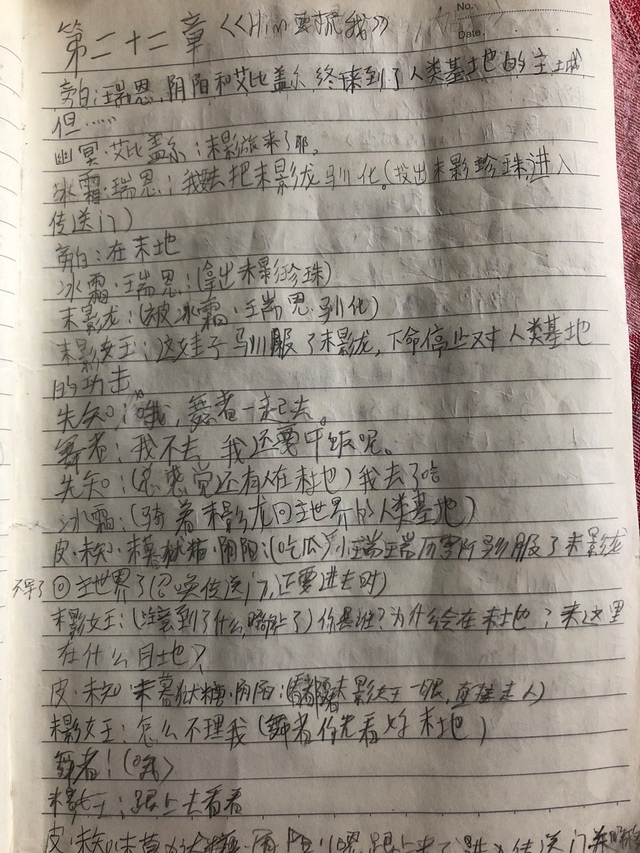 No.
Date.
第二十二章《《Him要抓我》》
旁白：瑞恩，阴阳和艾比盖尔终来到了人类基地的主城
但……
幽冥·艾比盖尔：末影龙来了耶。
冰霜·瑞恩：我去把末影龙驯化。(投出末影珍珠,进入
传送门)
旁白：在末地
冰霜·瑞恩：(拿出末影珍珠)
末影龙：(被冰霜·瑞恩驯化)
末影女王：这娃子驯服了末影龙，下命停止对人类基地
的功击。
先知：哦，舞者一起去。
舞者：我不去 我还要中饭呢。
先知：(总感觉还有人在末地)我去了哈
冰霜：(骑着末影龙回主世界的人类基地)
皮·未知·末莫狱·阴阳：(吃瓜)小瑞瑞 服了末影龙
不早了 回主世界了(召唤传送门,还要进去时)
末影女王：(注意到了什么,跟上了)你是谁？为什么会在末地？来这里
在什么目地？
皮·未知·末莫狱·阴阳：(末影女王一眼，直接走人)
末影女王：怎么不理我(舞者你先看好末地)
舞者：(哦)
末影女王：跟上去看看
皮·未知·末莫 跟上来了 进入传送门